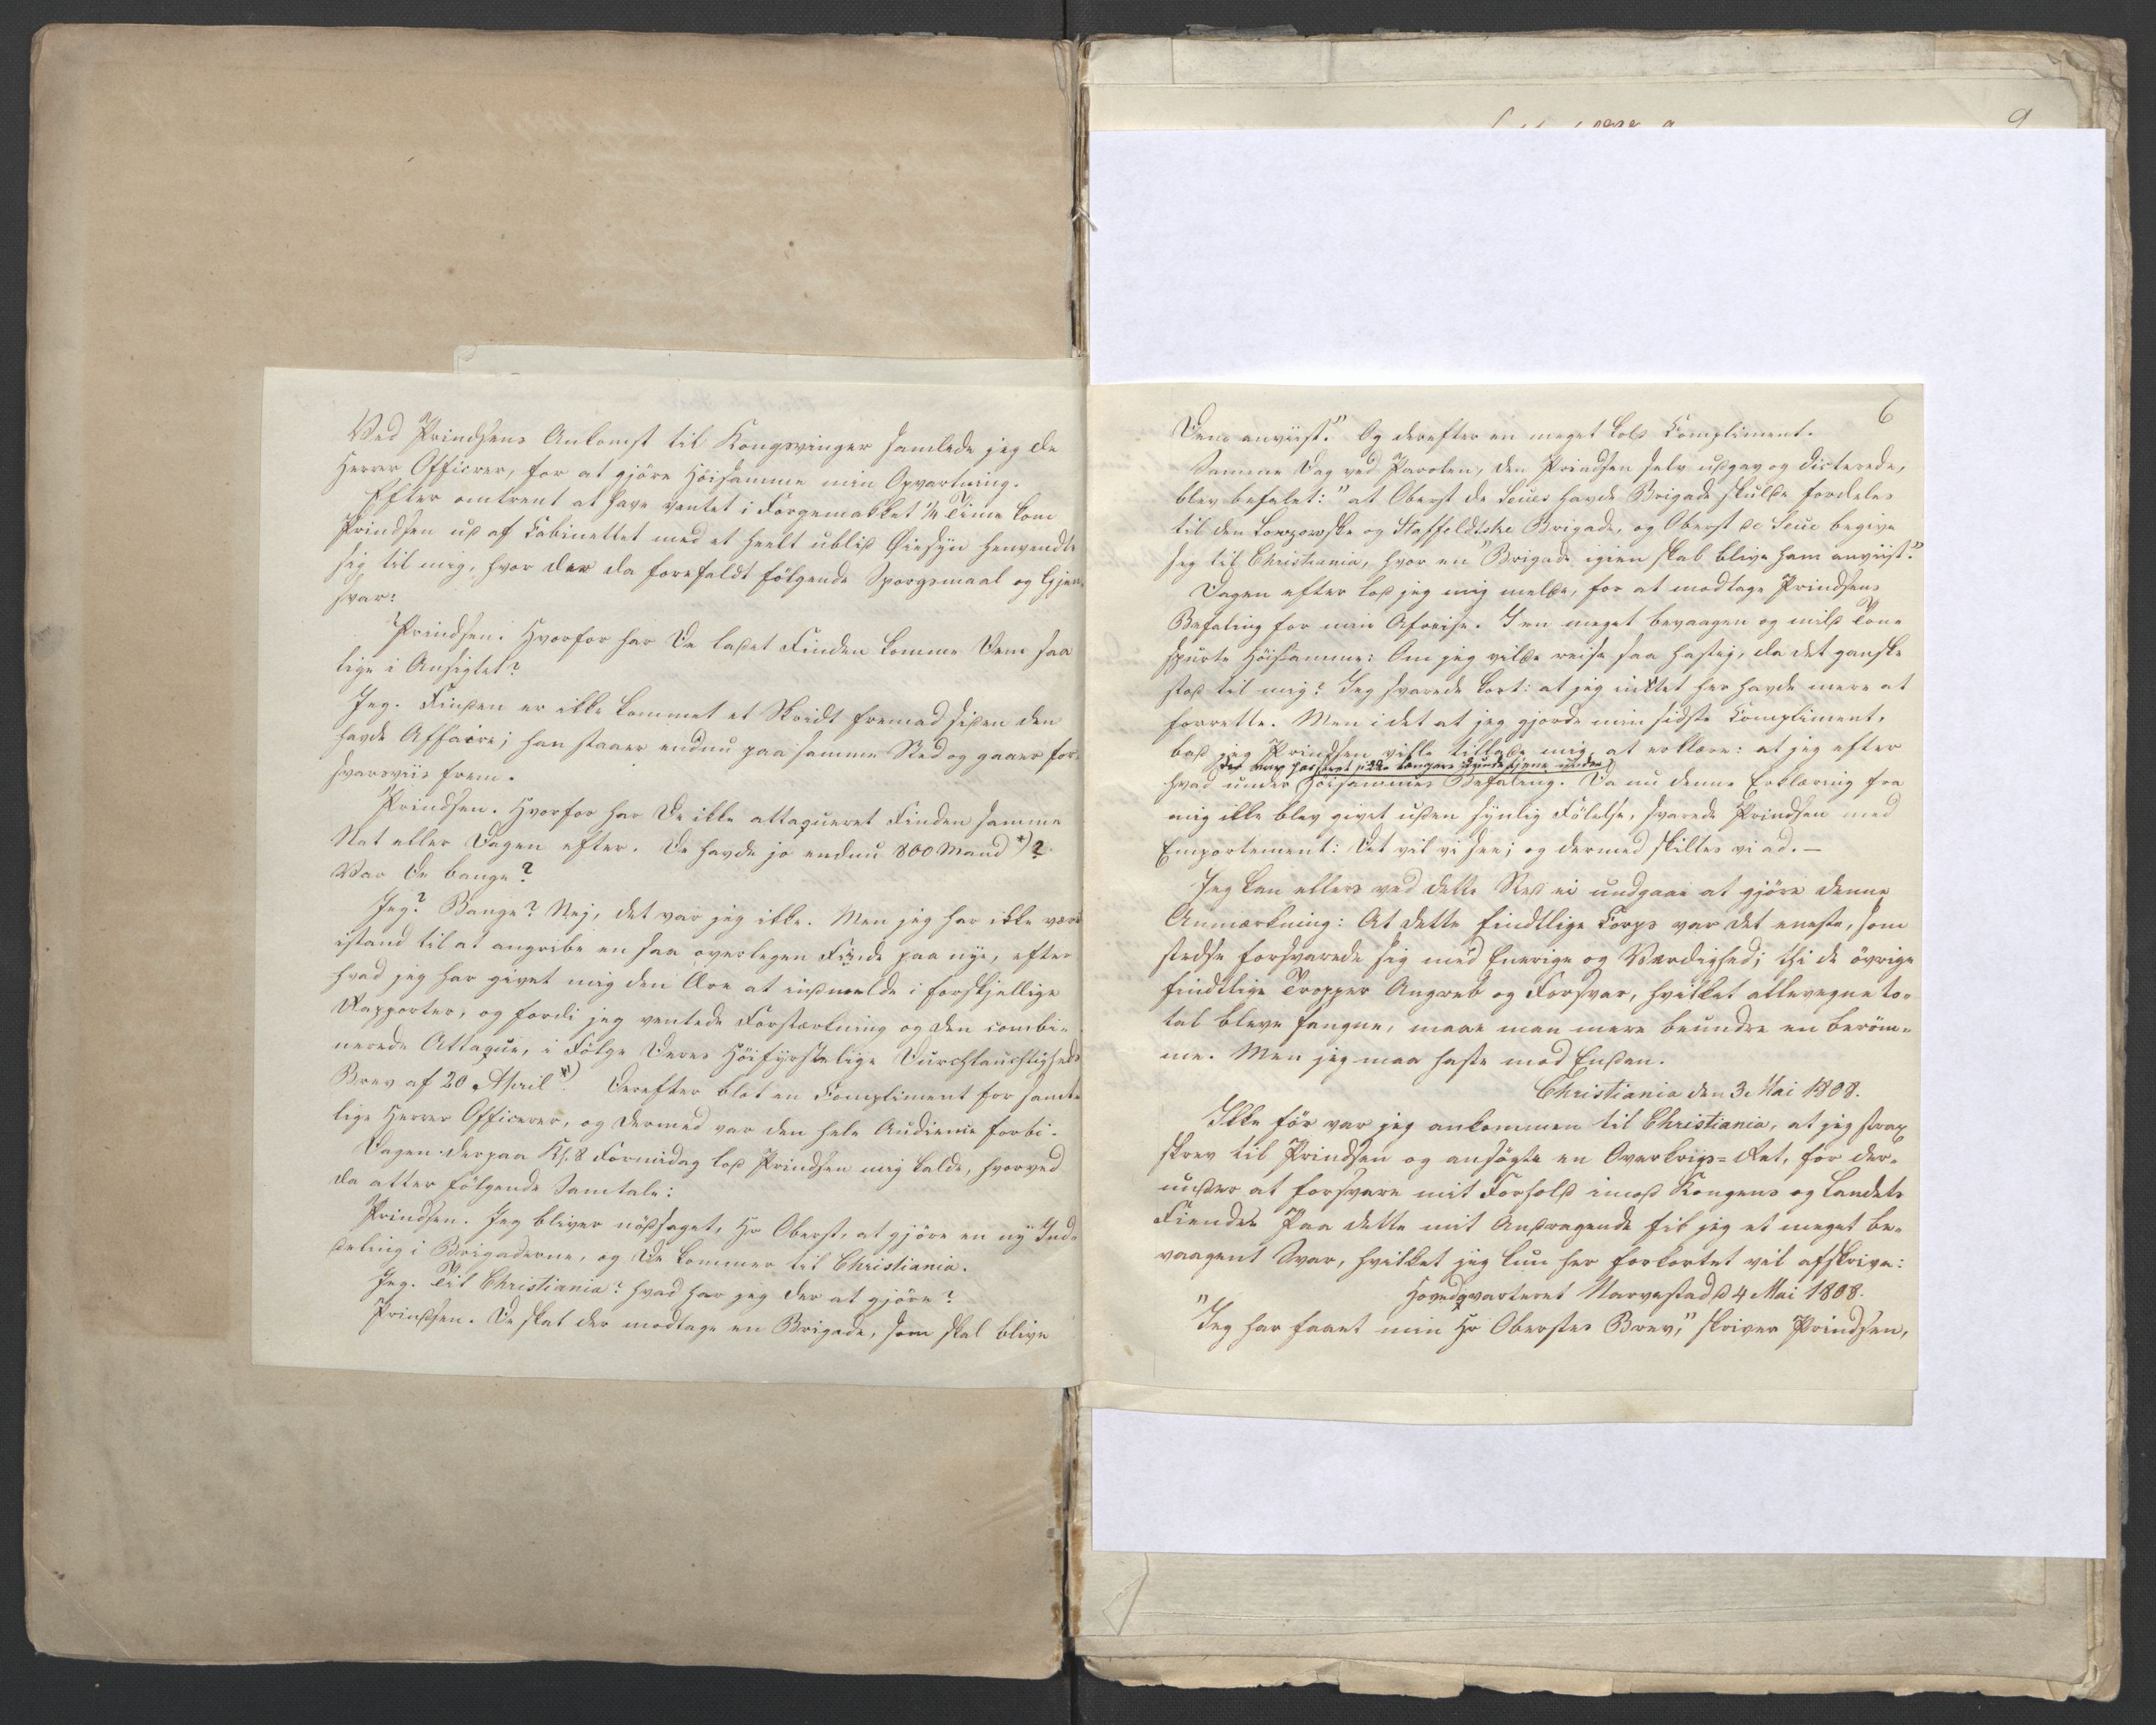 Ved Prindsens Ankomst til Kongsvinger samlede jeg de
Herrer Officerer, for at gjöre Höisamme min Opvartning.
Efter omtrent at have ventet i Forgemakket 1/4 Time kom
Prindsen ud af Cabinettet med et heelt ublid Öiesyn henvendte
sig til mig, hvor der da forefaldt fölgende Spörgsmaal og Gjen-
svar:
Prindsen. Hvorfor har De ladet Finden komme Dem saa
lige i Ansigtet?
Jeg. Finden er ikke kommet et Skridt fremad siden den
havde Affaire; han staaer endnu paa samme Sted og gaaer for-
svarsviis frem.
Prindsen. Hvorfor har De ikke attaqueret Finden samme
Nat eller Dagen efter. De havde jo endnu 800 Mand *)?
Var De bange?
Jeg? Bange? Nej, det var jeg ikke. Men jeg har ikke været
istand til at angribe en saa overlegen Finde paa nye, efter
hvad jeg har givet mig den Ære at indmelde i forskjellige
Rapporter, og fordi jeg ventede Forstærkning og den combi-
nerede Attaque, i Fölge Deres Höifyrstelige Durchlauchtigheds
Brev af 20 April *). Derefter blot en Compliment for samt-
lige Herrer Officerer, og dermed var den hele Audience forbi.
Dagen derpaa Kl. 8 Formidag lod Prindsen mig kalde, hvorved
da atter fölgende Samtale:
Prindsen. Jeg bliver nödsaget, Hr Oberst, at gjöre en ny Ind-
deling i Brigaderne, og De kommer til Christiania.
Jeg. Til Christiania? hvad har jeg der at gjöre?
Prindsen. De skal der modtage en Brigade, som skal blive
6
Dem anviist." Og derefter en meget kold Compliment.
Samme Dag ved Parolen, den Prindsen selv udgav og dicterede,
blev befalet: "at Oberst de Seues havde Brigade skulde fordeles
til den Lowzowske og Staffeldtske Brigade, og Oberst de Seue begive
sig til Christiania, hvor en "Brigade igien skal blive ham anviist."
Dagen efter lod jeg mig melde, for at modtage Prindsens
Befaling for min Afreise. I en meget bevaagen og mild Tone
spurte Höisamme: Om jeg vilde reise saa hastig, da det ganske
stod til mig? Jeg svarede kort: at jeg intet her havde mere at
forrette. Men i det at jeg gjorde min sidste Compliment,
bad jeg Prindsen ville tillade mig at erklære: at jeg efter
der var passeret ikke længere kunde tjene under
hvad under Höisammes Befaling. Da nu denne Erklæring fra
mig ikke blev givet uden synlig Fölelse, svarede Prindsen med
Emportement: Det vil vi see; og dermed skiltes vi ad. –
Jeg kan ellers ved dette Sted ei undgaae at gjöre denne
Anmærkning: At dette findtlige Corps var det eneste, som
stedse forsvarede sig med Enerige og Værdighed; thi de övrige
findtlige Tropper Angreb og Forsvar, hvilket allevegne to-
tal bleve fangne, maae man mere beundre en beröm-
me. Men jeg maa haste mod Enden.
Christiania den 3. Mai 1808.
Ikke för var jeg ankommen til Christiania, at jeg strax
skrev til Prindsen og ansögte en Overkrigs=Ret, for der-
under at forsvare mit Forhold imod Kongens og Landets
Fiender Paa dette mit Andragende fik jeg et meget be-
vaagent Svar, hvilket jeg kun her forkortet vil afskrive:
Hovedqvarteret Narvestad d 4 Mai 1808.
"Jeg har faaet min Hr Oberstes Brev," skriver Prindsen,
9